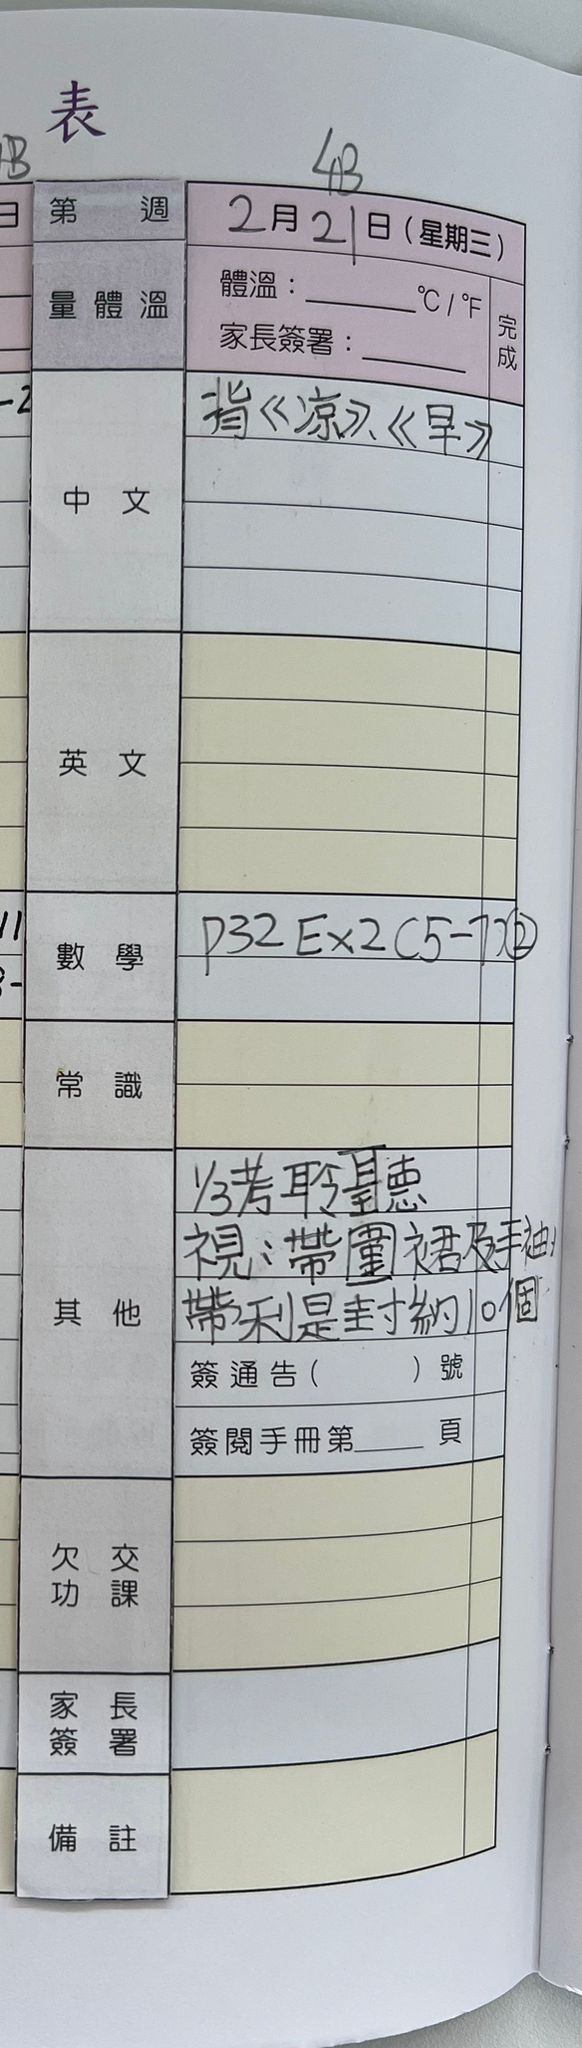 表
4B
第 週
2月21日（星期三）
量體溫
體溫：______°C / °F
完成
家長簽署：______
中文
背《凉》、《早》
英文
數學
P32 Ex2 (5-7)②
常識
其他
1/3考聆聽
視：帶圍裙及手袖，
帶利是封約10個
簽通告（ ）號
簽閱手冊第____頁
欠交功課
家長簽署
備註